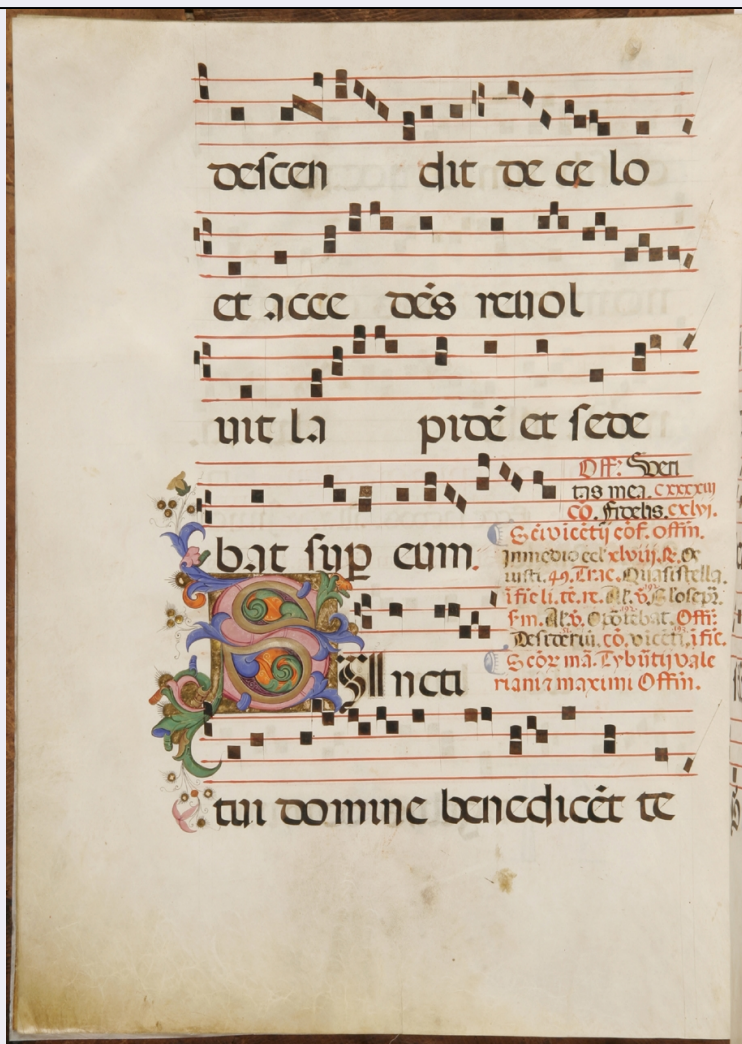 descen dit de ce lo
et acce dēs reuol
uit la pidē et sede
bat sup eum.
Off: Veri
tas mea. cxxxxiii
cō. fidelis. cxlvi.
S. ēi vicētij cōf. offm.
In medio eccl xlviii. R. Os
iusti. 49. Trac. Quasi stella.
Al. v. Glose
Al. v. Oportebat. Offi:
Desideriū. cō. vicēti. ī fie.
S cōr mā. Tyburtij vale
riani a maximi Offm.
SAncti
tui domine benedicēt te